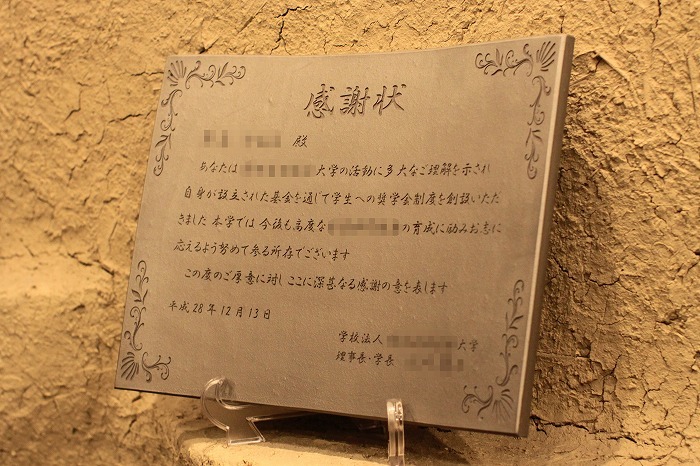 感謝状
殿
あなたは 大学の活動に多大なご理解を示され
自身が設立された基金を通じて学生への奨学会制度を創設いただ
きました 本学では 今後も高度な の育成に励みお志に
応えるよう努めて参る所存でございます
この度のご厚意に対し ここに深甚なる感謝の意を表します
平成28年12月13日
学校法人 大学
理事長・学長